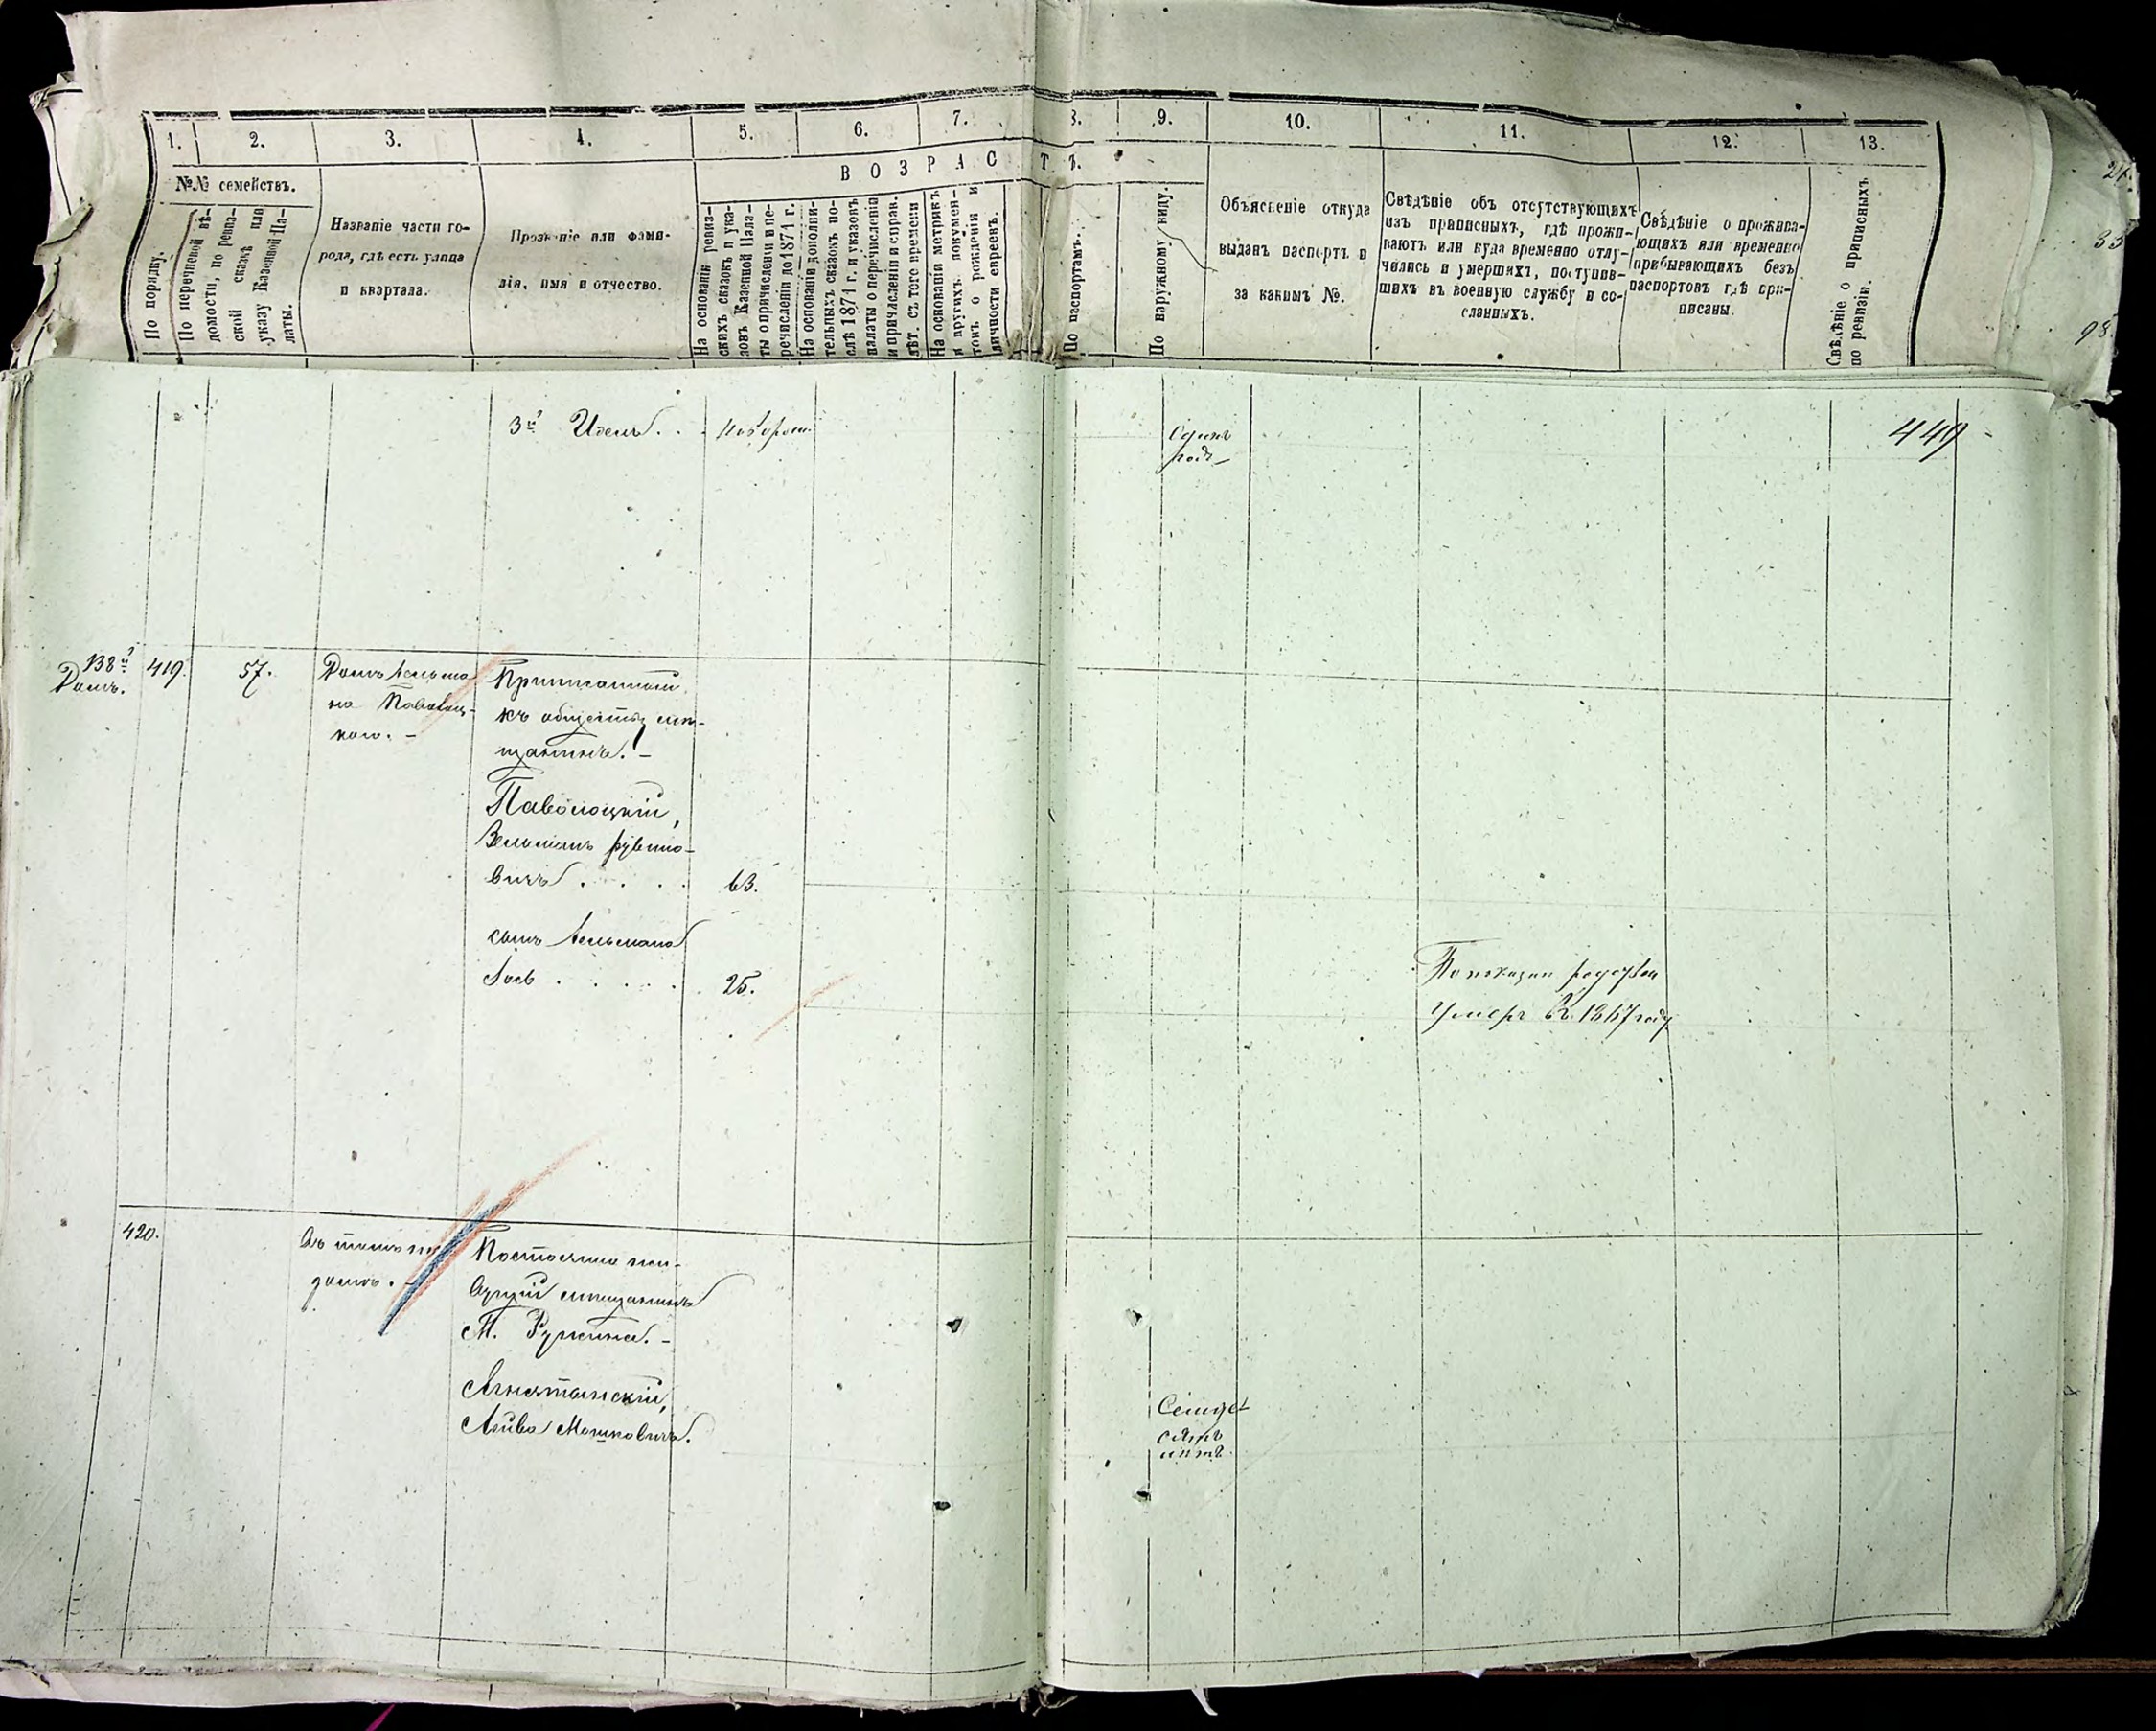 1.
2.
3.
4.
5.
6.
7.
8.
9.
10.
11.
12.
13.
№№ семействъ.
ВОЗРАСТЪ.
По порядку.
По перечневой вѣ-
домости, по ревиз-
ской сказкѣ или
указу Казенной Па-
латы.
Названіе части го-
рода, гдѣ есть улица
и квартала.
Прозваніе или фами-
лія, имя и отчество.
На основаніи ревиз-
скихъ сказокъ и ука-
зовъ Казенной Пала-
ты о причисленіи и пе-
речисленіи до 1871 г.
На основаніи дополни-
тельныхъ сказокъ по-
слѣ 1871 г. и указовъ
палаты о перечисленіи
и причисленіи и справ.
лѣт. съ того времени
На основаніи метрикъ
и другихъ докумен-
товъ о рожденіи и
личности евреевъ.
По паспортамъ.
По наружному виду.
Объясненіе откуда
выданъ паспортъ и
за какимъ №.
Свѣдѣніе объ отсутствующихъ
изъ приписныхъ, гдѣ прожи-
ваютъ или куда временно отлу-
чились и умершихъ, поступив-
шихъ въ военную службу и со-
сланныхъ.
Свѣдѣніе о прожива-
ющихъ или временно
прибывающихъ безъ
паспортовъ гдѣ при-
писаны.
Свѣдѣніе о приписныхъ
по ревизіи.
33
98.
449
3й
Одинъ
годъ
138й
Домъ.
419.
57.
Домъ Зельма
на Паволоц-
каго.
Приписанный
къ обществу мѣ-
щанинъ.
Паволоцкій,
Зельманъ Рувино-
вичъ . . . .
63.
сынъ Зельмана
Іось . . . . .
25.
По показан
Умеръ въ 1867 году
420.
Въ томъ же
домѣ.
Постоянно жи-
вущій мѣщанинъ
М. Ружина.
Агнятанскій,
Акива Мошковичъ.
Семьде-
сятъ
лѣтъ